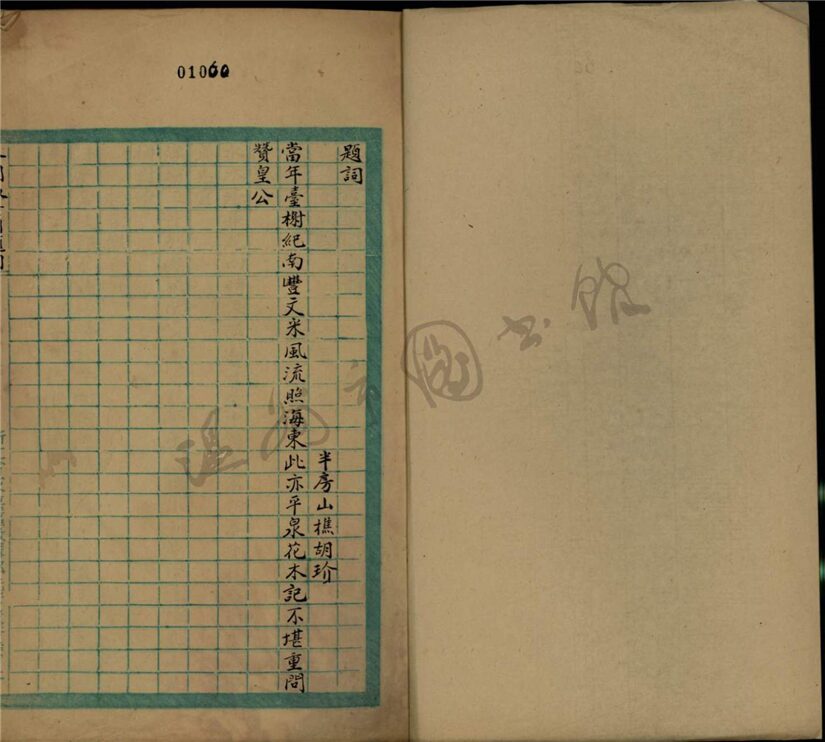 01060
題詞
半房山樵胡玠
當年臺榭紀南豐文米風流照海東此亦平泉花木記不堪重問
贊皇公
溫州市圖书館